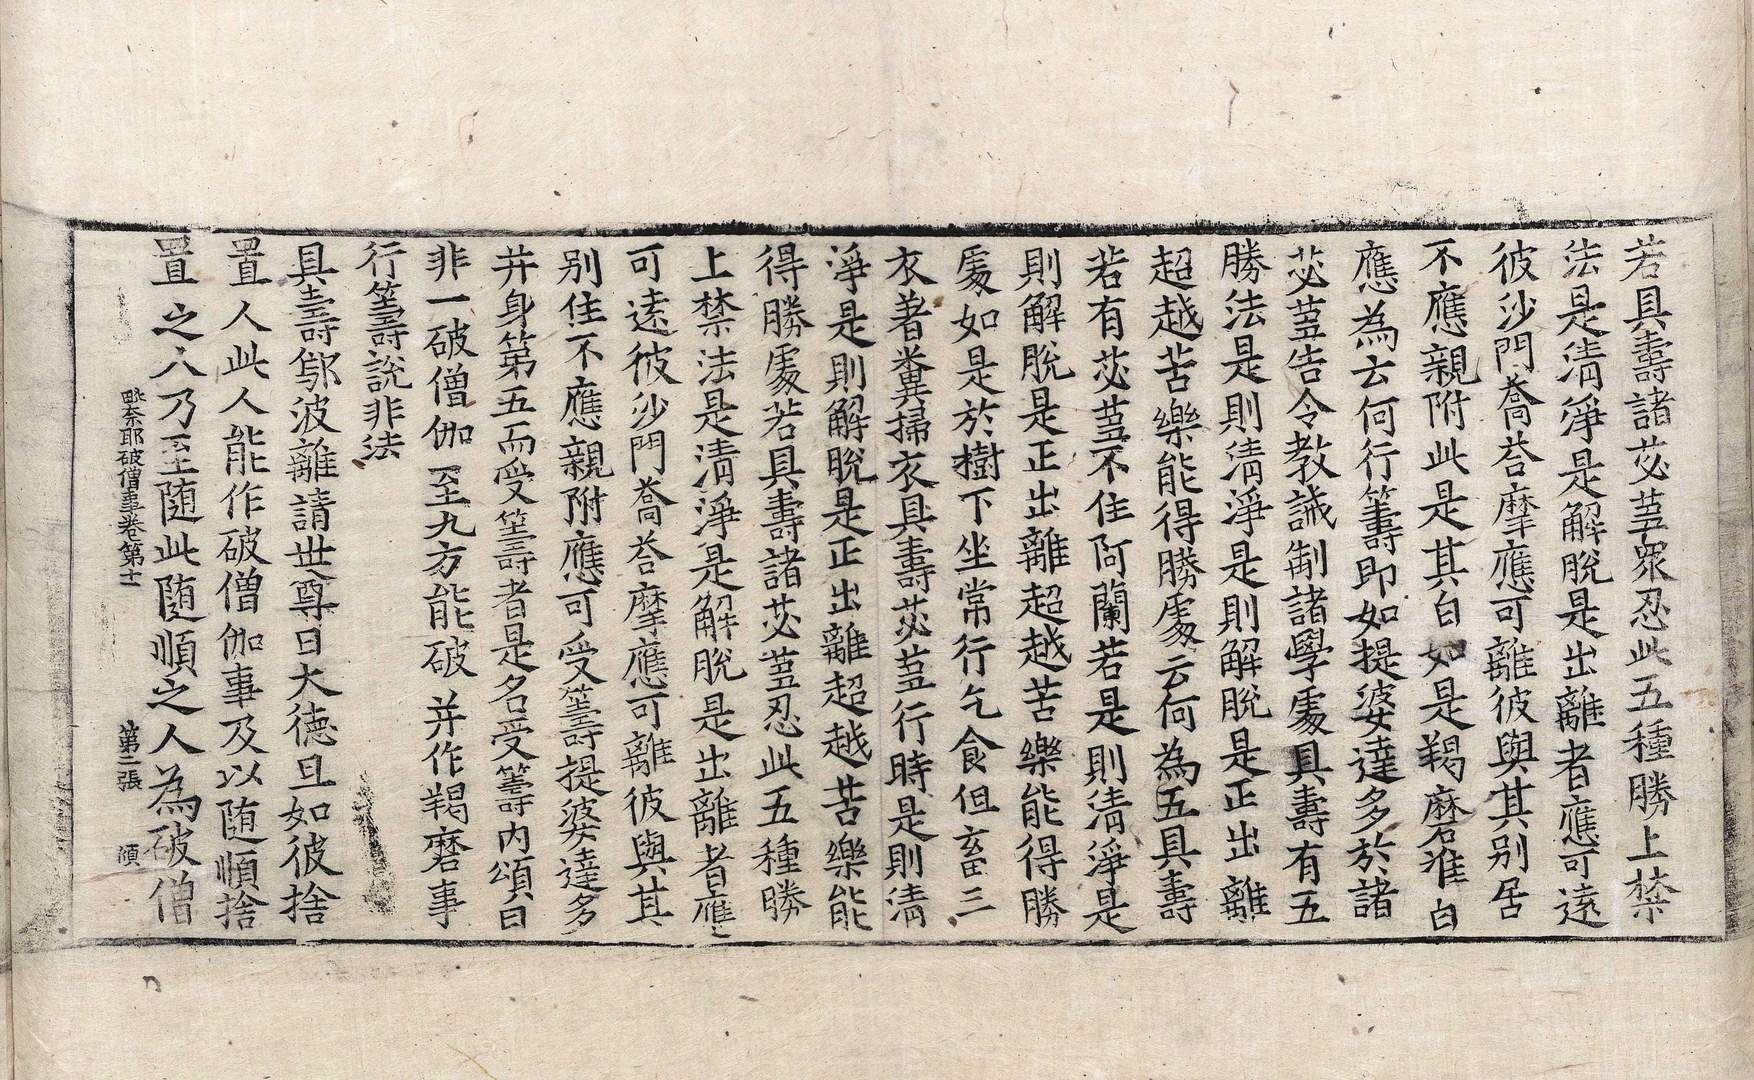 若具壽諸苾蒭衆忍此五種勝上禁
法是清淨是解脫是出離者應可遠
彼沙門喬荅摩應可離彼與其别居
不應親附此是其白如是羯磨准白
應為云何行籌即如提婆達多於諸
苾蒭告令教誡制諸學處具壽有五
勝法是則清淨是則解脫是正出離
超越苦樂能得勝處云何為五具壽
若有苾蒭不住阿蘭若是則清淨是
則解脫是正出離超越苦樂能得勝
處如是於樹下坐常行乞食但畜三
衣著糞掃衣具壽苾蒭行時是則清
淨是則解脫是正出離超越苦樂能
得勝處若具壽諸苾蒭忍此五種勝
上禁法是清淨是解脫是出離者應
可遠彼沙門喬荅摩應可離彼與其
别住不應親附應可受籌提婆達多
并身第五而受籌者是名受籌内頌曰
非一破僧伽 至九方能破 并作羯磨事
行籌說非法
具壽鄔波離請世尊曰大德且如彼捨
置人此人能作破僧伽事及以随順捨
置之人乃至随此随順之人為破僧
毗奈耶破僧事卷第十一 第二張 順